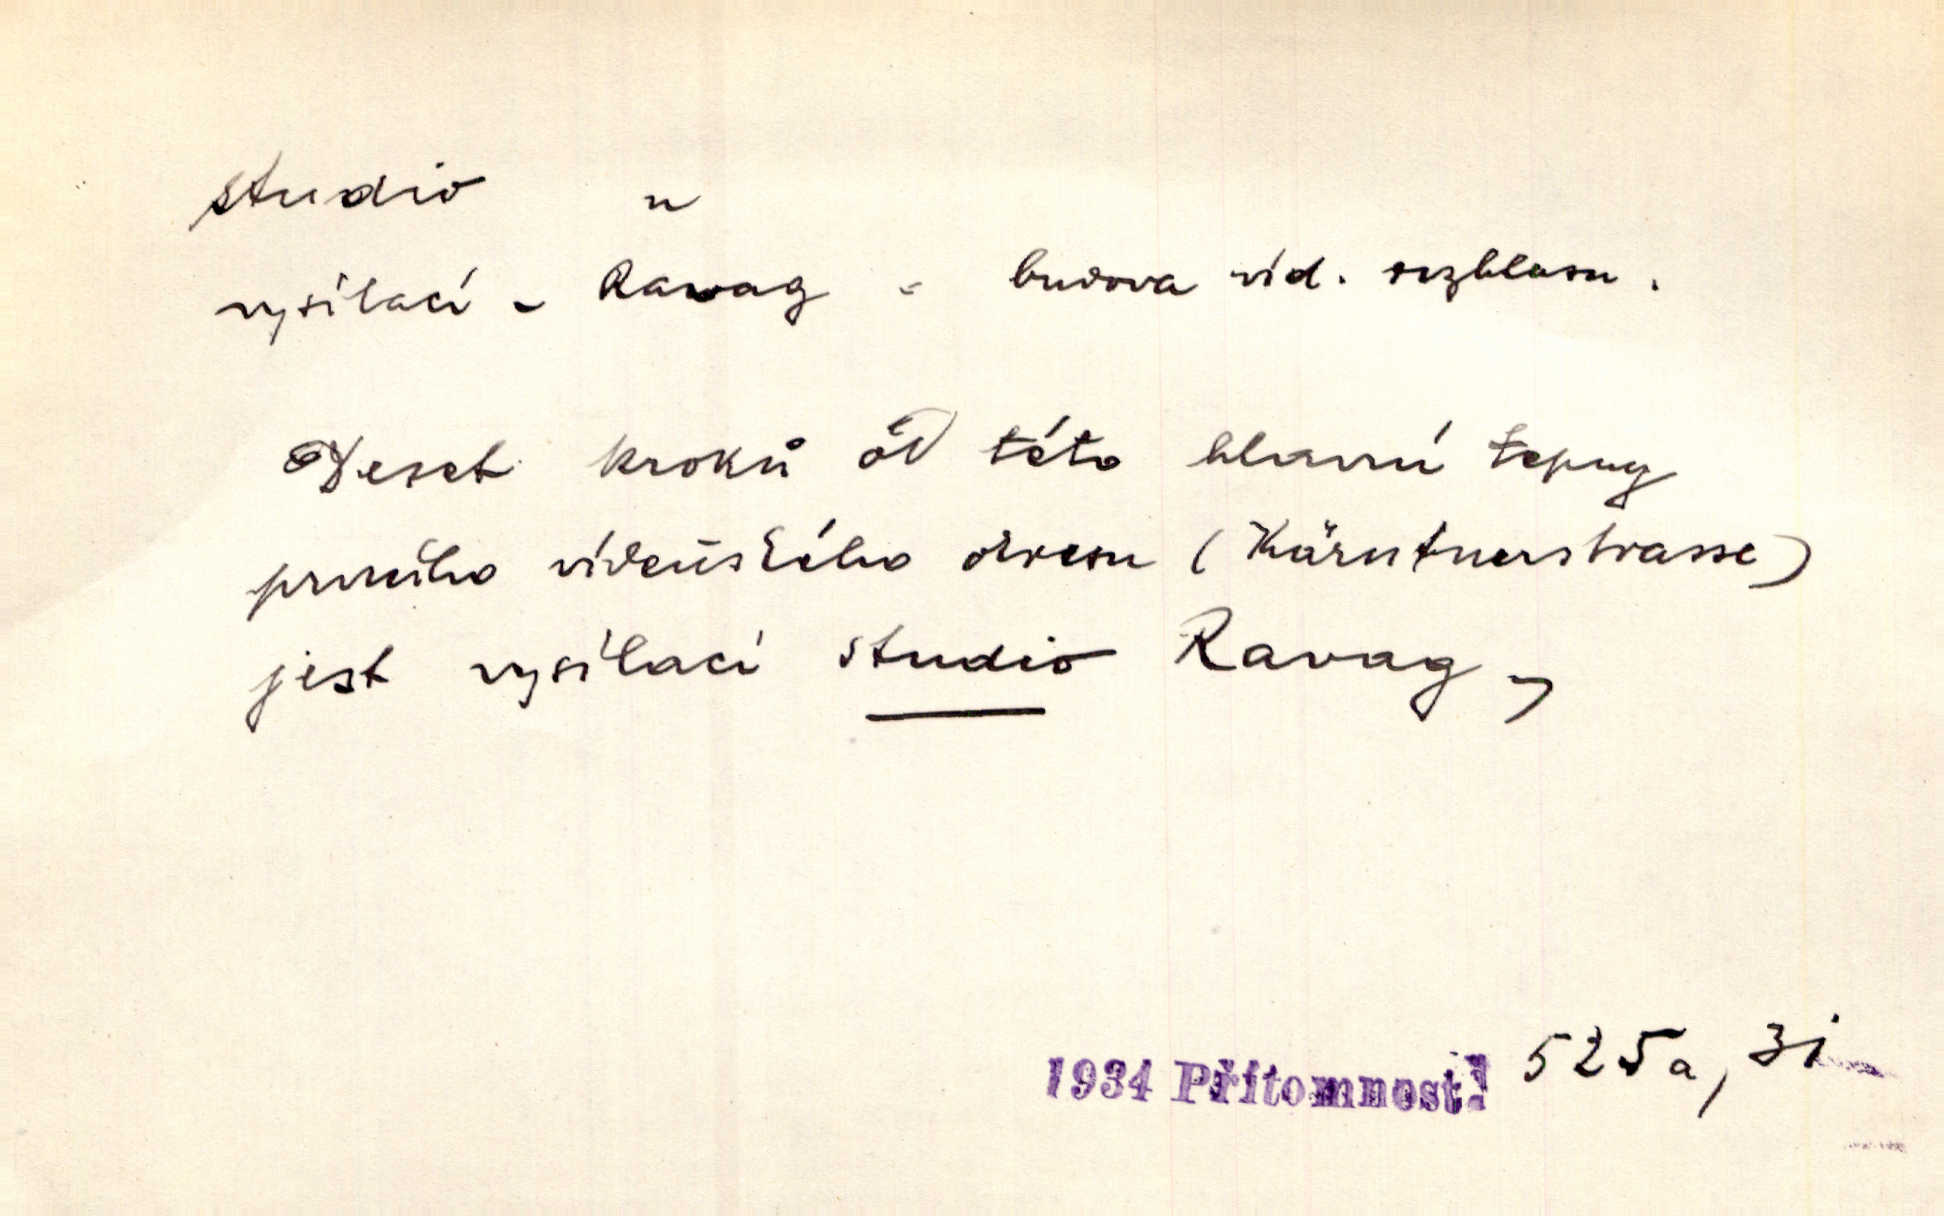 studio n
vysílací - Ravag = budova víd. rozhlasu.
Deset kroků od této hlavní tepny
prvního vídeňského okresu (Kärntnerstrasse)
jest vysílací studio Ravag,
1934 Přítomnost! 525a, zi